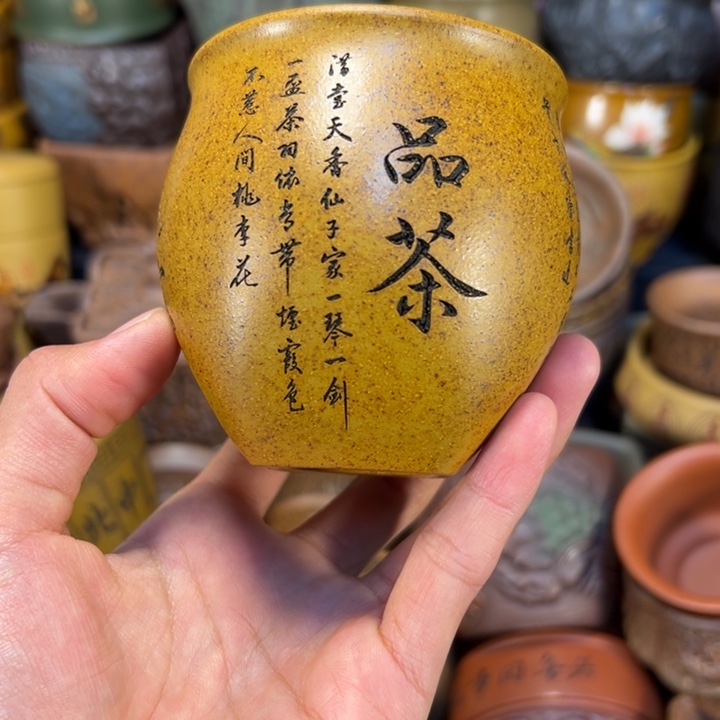 品茶
满堂天香仙子家一琴一剑
一盃茶羽依常带烟霞色
不惹人间桃李花